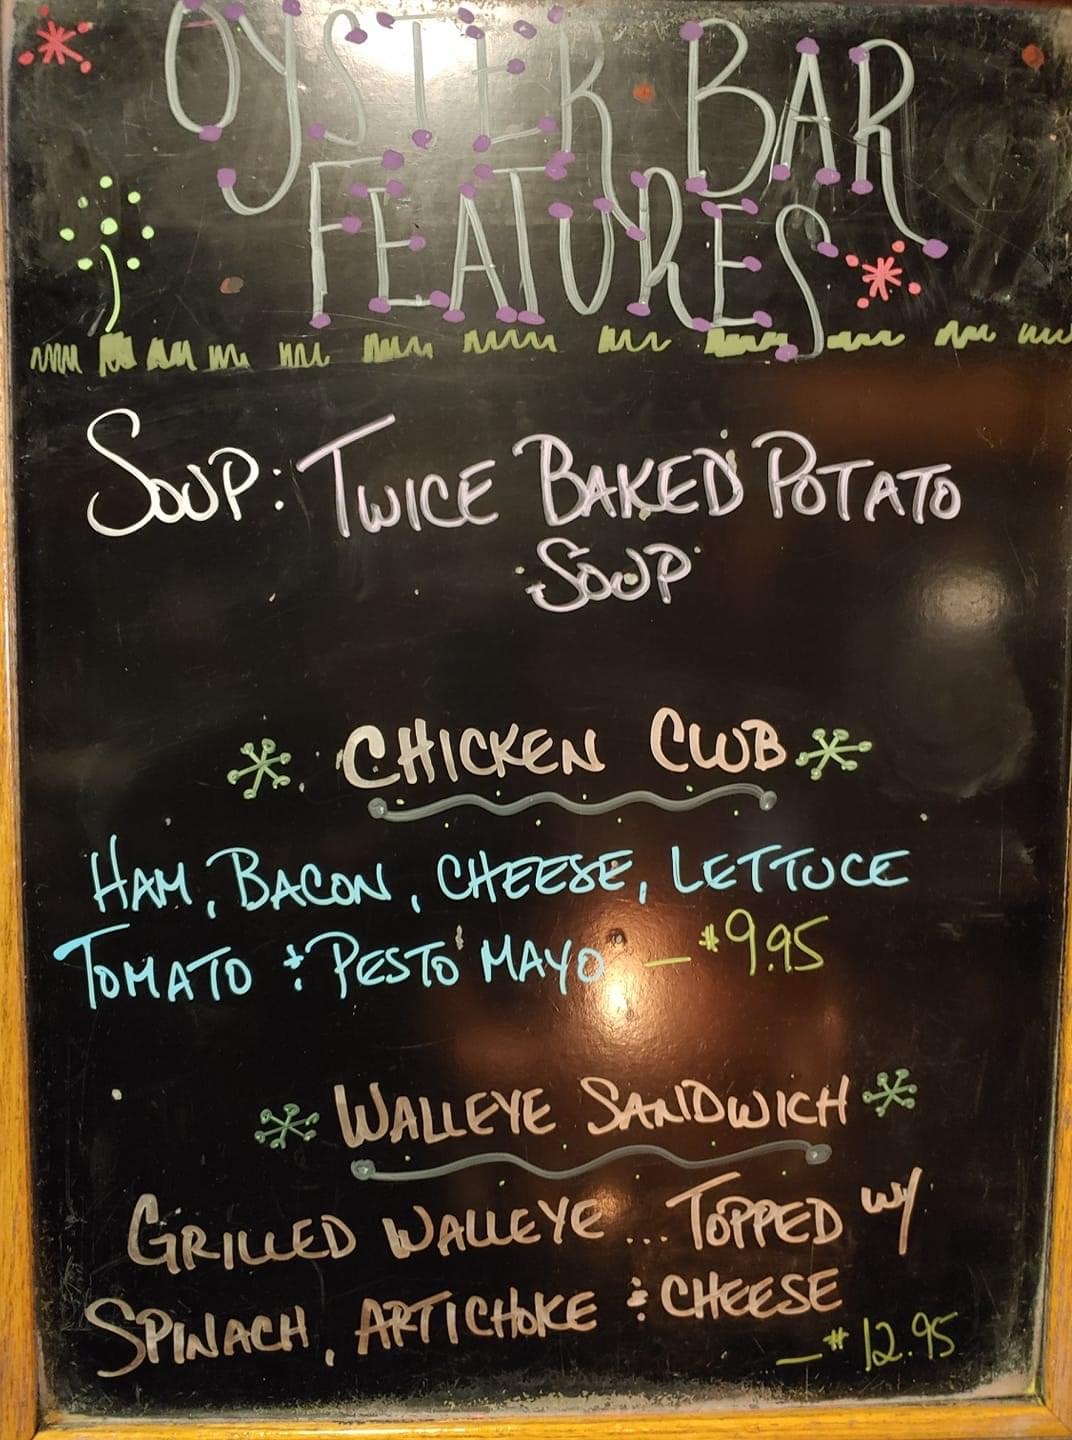 OYSTER BAR
FEATURES
SOUP: TWICE BAKED POTATO
SOUP
CHICKEN CLUB
HAM, BACON, CHEESE, LETTUCE
TOMATO & PESTO MAYO - $9.95
WALLEYE SANDWICH
GRILLED WALLEYE... TOPPED W/
SPINACH, ARTICHOKE & CHEESE
- $12.95